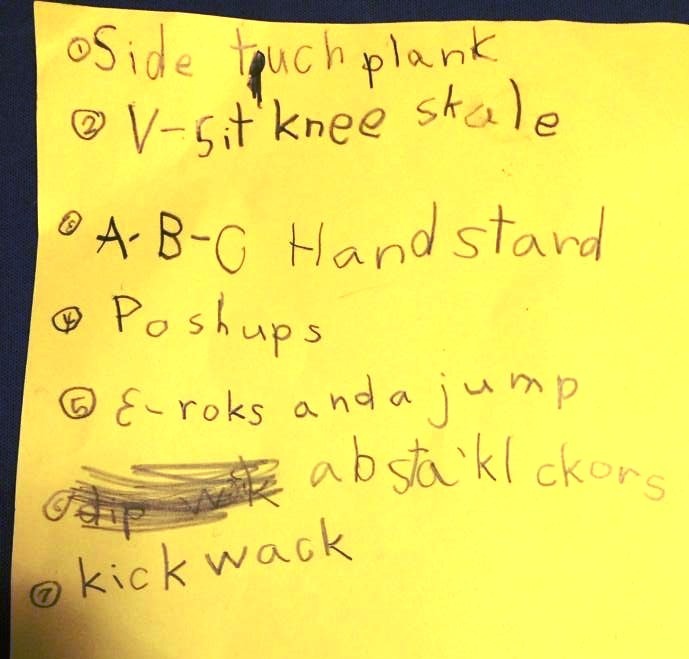 ① Side tuch plank
② V-sit knee skale
③ A-B-C Handstand
④ Poshups
⑤ E-roks and a jump
⑥ dip walk absta'kl ckors
⑦ kick wack